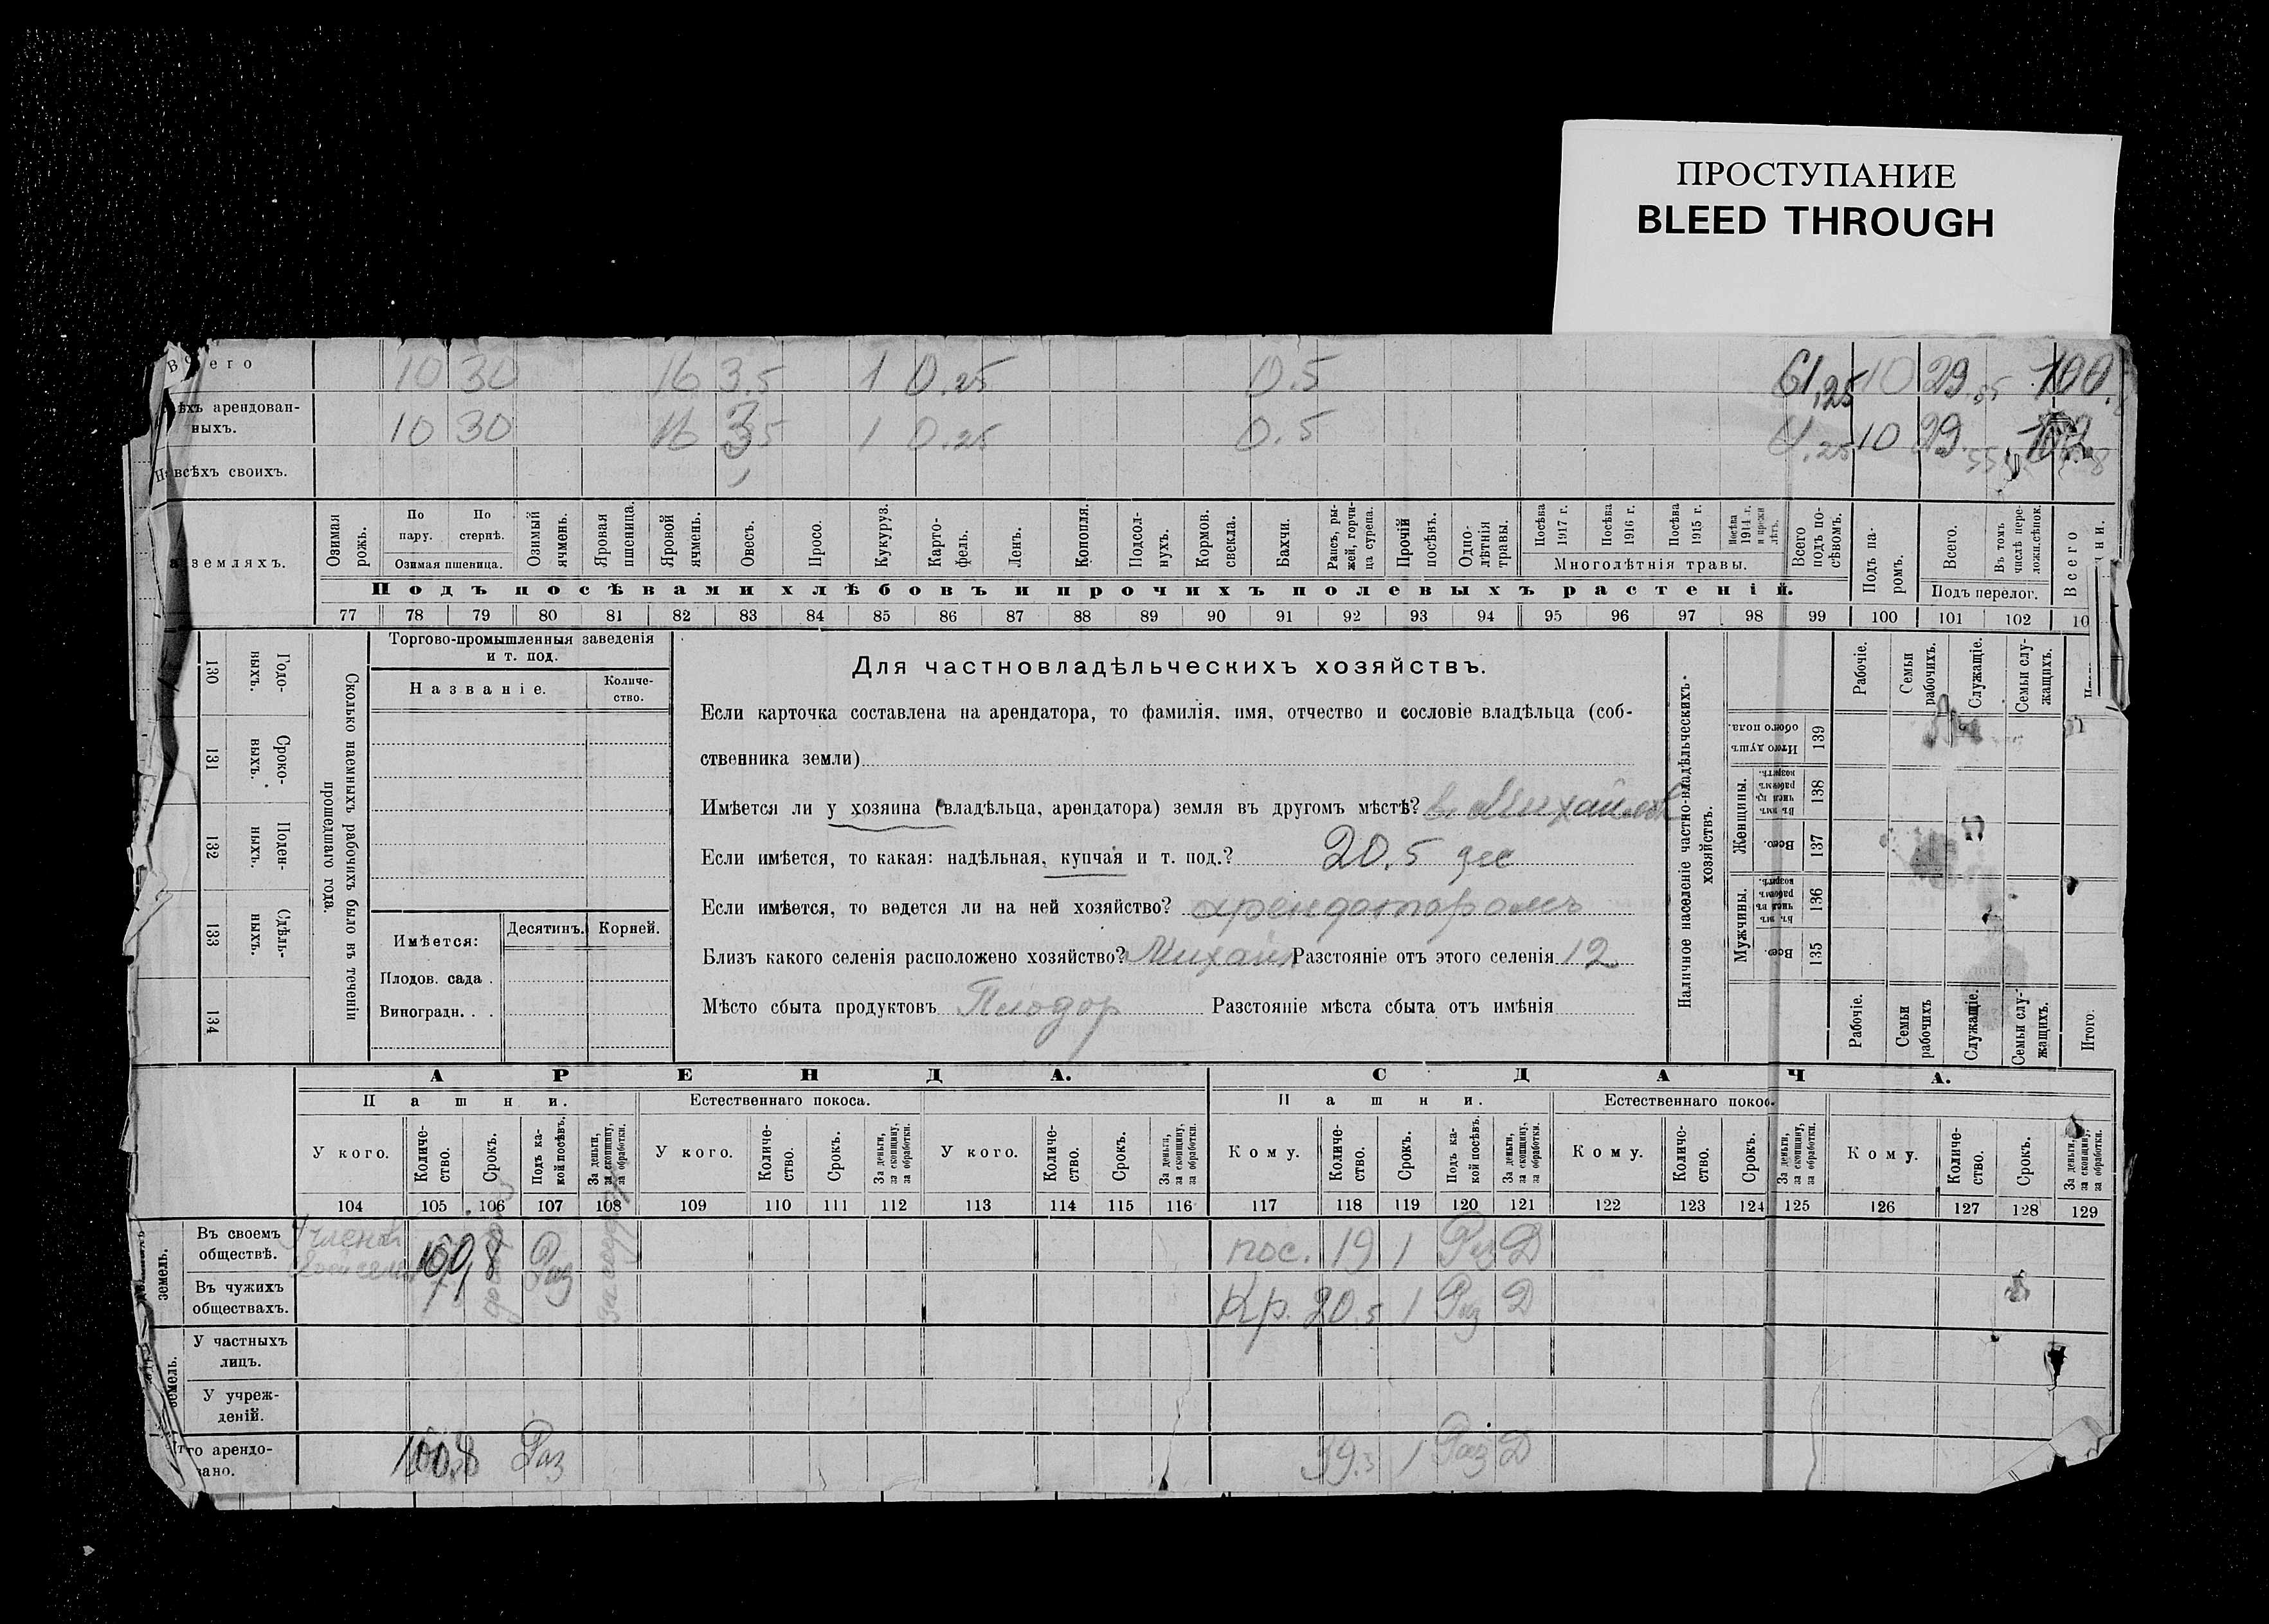 ПРОСТУПАНИЕ
BLEED THROUGH
Всего 10 30 16 3.5 1 0.25 0.5 61,25 10 29.55 100.
арендованныхъ. 10 30 16 3 5 1 0.25 0.5 10 29.
всѣхъ своихъ.
земляхъ.
Озимая рожь.
По пару.
По стернѣ.
Озимая пшеница.
Озимый ячмень.
Яровая пшеница.
Яровой ячмень.
Овесъ.
Просо.
Кукуруз.
Картофель.
Ленъ.
Конопля.
Подсолнухъ.
Кормов. свекла.
Бахчи.
Рапсъ, рыжей, горчица сурепа.
Прочій посѣвъ.
Однолѣтнія травы.
Посѣва 1917 г.
Посѣва 1916 г.
Посѣва 1915 г.
Посѣва 1914 г. и прежн лѣтъ.
Многолѣтнія травы.
Всего подъ посѣвомъ.
Подъ паромъ.
Всего.
Въ томъ числѣ переложн.сѣнок.
Подъ перелог.
Всего
Подъ посѣвами хлѣбовъ и прочихъ полевыхъ растеній.
77 78 79 80 81 82 83 84 85 86 87 88 89 90 91 92 93 94 95 96 97 98 99 100 101 102 10
130 Годовыхъ.
131 Сроковыхъ.
132 Поденныхъ.
133 Сдѣльныхъ.
134
Сколько наемныхъ рабочихъ было въ теченіи прошедшаго года.
Торгово-промышленныя заведенія
и т. под.
Названіе. Количество.
Имѣется: Десятинъ. Корней.
Плодов. сада .
Виноградн. . .
Для частновладѣльческихъ хозяйствъ.
Если карточка составлена на арендатора, то фамилія, имя, отчество и сословіе владѣльца (соб-
ственника земли)
Имѣется ли у хозяина (владѣльца, арендатора) земля въ другомъ мѣстѣ?
Если имѣется, то какая: надѣльная, купчая и т. под.? 20.5 дес
Если имѣется, то ведется ли на ней хозяйство? арендаторомъ
Близъ какого селенія расположено хозяйство? Михайл Разстояніе отъ этого селенія 12
Мѣсто сбыта продуктовъ Разстояніе мѣста сбыта отъ имѣнія
Наличное населеніе частно-владѣльческихъ хозяйствъ.
Рабочіе.
Семьи рабочихъ.
Служащіе.
Семьи служащихъ.
Итого душъ обоего пола. 139
Женщины.
Въ томъ числѣ рабочемъ возрастѣ. 138
Всего. 137
Мужчины.
Въ томъ числѣ въ рабочемъ возрастѣ. 136
Всего. 135
Рабочіе.
Семьи рабочихъ
Служащіе.
Семьи служащихъ.
Итого.
АРЕНДА. СДАЧА.
Пашни. Естественнаго покоса. Пашни. Естественнаго покос.
У кого. Количество. Срокъ. Подъ какой посѣвъ. За деньги, за скопщину, за обработки.
У кого. Количество. Срокъ. За деньги, за скопщину, за обработки.
У кого. Количество. Срокъ. За деньги, за скопщину, за обработки.
Кому. Количество. Срокъ. Подъ какой посѣвъ. За деньги, за скопщину, за обработки.
Кому. Количество. Срокъ. За деньги, за скопщину, за обработки.
Кому. Количество. Срокъ. За деньги, за скопщину, за обработки.
104 105 106 107 108 109 110 111 112 113 114 115 116 117 118 119 120 121 122 123 124 125 126 127 128 129
земель.
Въ своемъ обществѣ. Раз пос. 19 1 Раз Д
Въ чужихъ обществахъ. Кр. 20.5 1 Раз Д
земель.
У частныхъ лицъ.
У учрежденій.
арендовано. 100,8 Раз 39.5 1 Раз Д